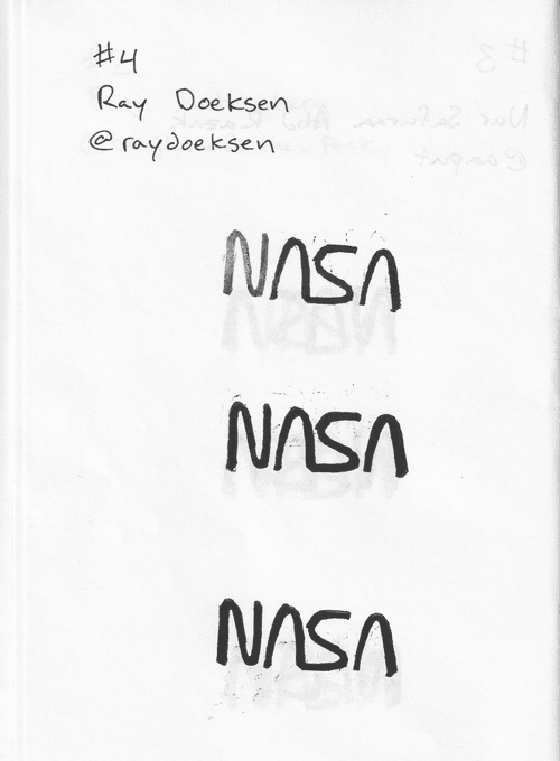 #4
Ray Doeksen
@raydoeksen
NASA
NASA
NASA